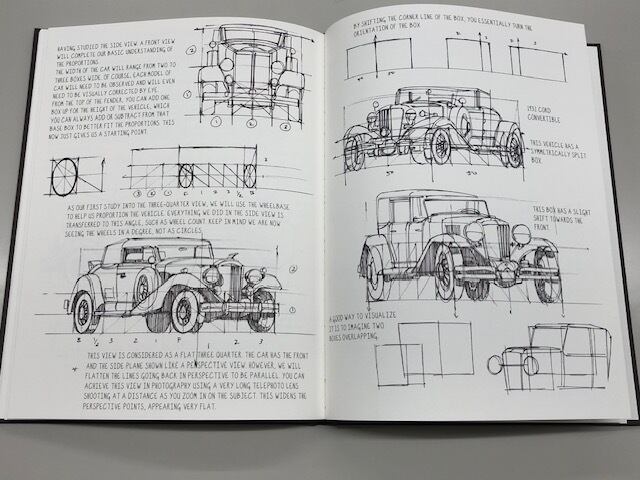 HAVING STUDIED THE SIDE VIEW, A FRONT VIEW
WILL COMPLETE OUR BASIC UNDERSTANDING OF
THE PROPORTIONS.
THE WIDTH OF THE CAR WILL RANGE FROM TWO TO
THREE BOXES WIDE. OF COURSE, EACH MODEL OF
CAR WILL NEED TO BE OBSERVED AND WILL EVEN
NEED TO BE VISUALLY CORRECTED BY EYE.
FROM THE TOP OF THE FENDER, YOU CAN ADD ONE
BOX UP FOR THE HEIGHT OF THE VEHICLE, WHICH
YOU CAN ALWAYS ADD OR SUBTRACT FROM THAT
BASE BOX TO BETTER FIT THE PROPORTIONS. THIS
NOW JUST GIVES US A STARTING POINT.
2
1
1 2 3
AS OUR FIRST STUDY INTO THE THREE-QUARTER VIEW, WE WILL USE THE WHEELBASE
TO HELP US PROPORTION THE VEHICLE. EVERYTHING WE DID IN THE SIDE VIEW IS
TRANSFERRED TO THIS ANGLE, SUCH AS WHEEL COUNT. KEEP IN MIND WE ARE NOW
SEEING THE WHEELS IN A DEGREE, NOT AS CIRCLES.
2
1
B ½ 3 2 1 F 1 2 3
THIS VIEW IS CONSIDERED AS A FLAT THREE QUARTER. THE CAR HAS THE FRONT
AND THE SIDE PLANE SHOWN LIKE A PERSPECTIVE VIEW. HOWEVER, WE WILL
FLATTEN THE LINES GOING BACK IN PERSPECTIVE TO BE PARALLEL. YOU CAN
ACHIEVE THIS VIEW IN PHOTOGRAPHY USING A VERY LONG TELEPHOTO LENS
SHOOTING AT A DISTANCE AS YOU ZOOM IN ON THE SUBJECT. THIS WIDENS THE
PERSPECTIVE POINTS, APPEARING VERY FLAT.
BY SHIFTING THE CORNER LINE OF THE BOX, YOU ESSENTIALLY TURN THE
ORIENTATION OF THE BOX
50 50
1931 CORD
CONVERTIBLE
THIS VEHICLE HAS A
SYMMETRICALLY SPLIT
BOX.
50 50
THIS BOX HAS A SLIGHT
SHIFT TOWARDS THE
FRONT.
A GOOD WAY TO VISUALIZE
IT IS TO IMAGINE TWO
BOXES OVERLAPPING.